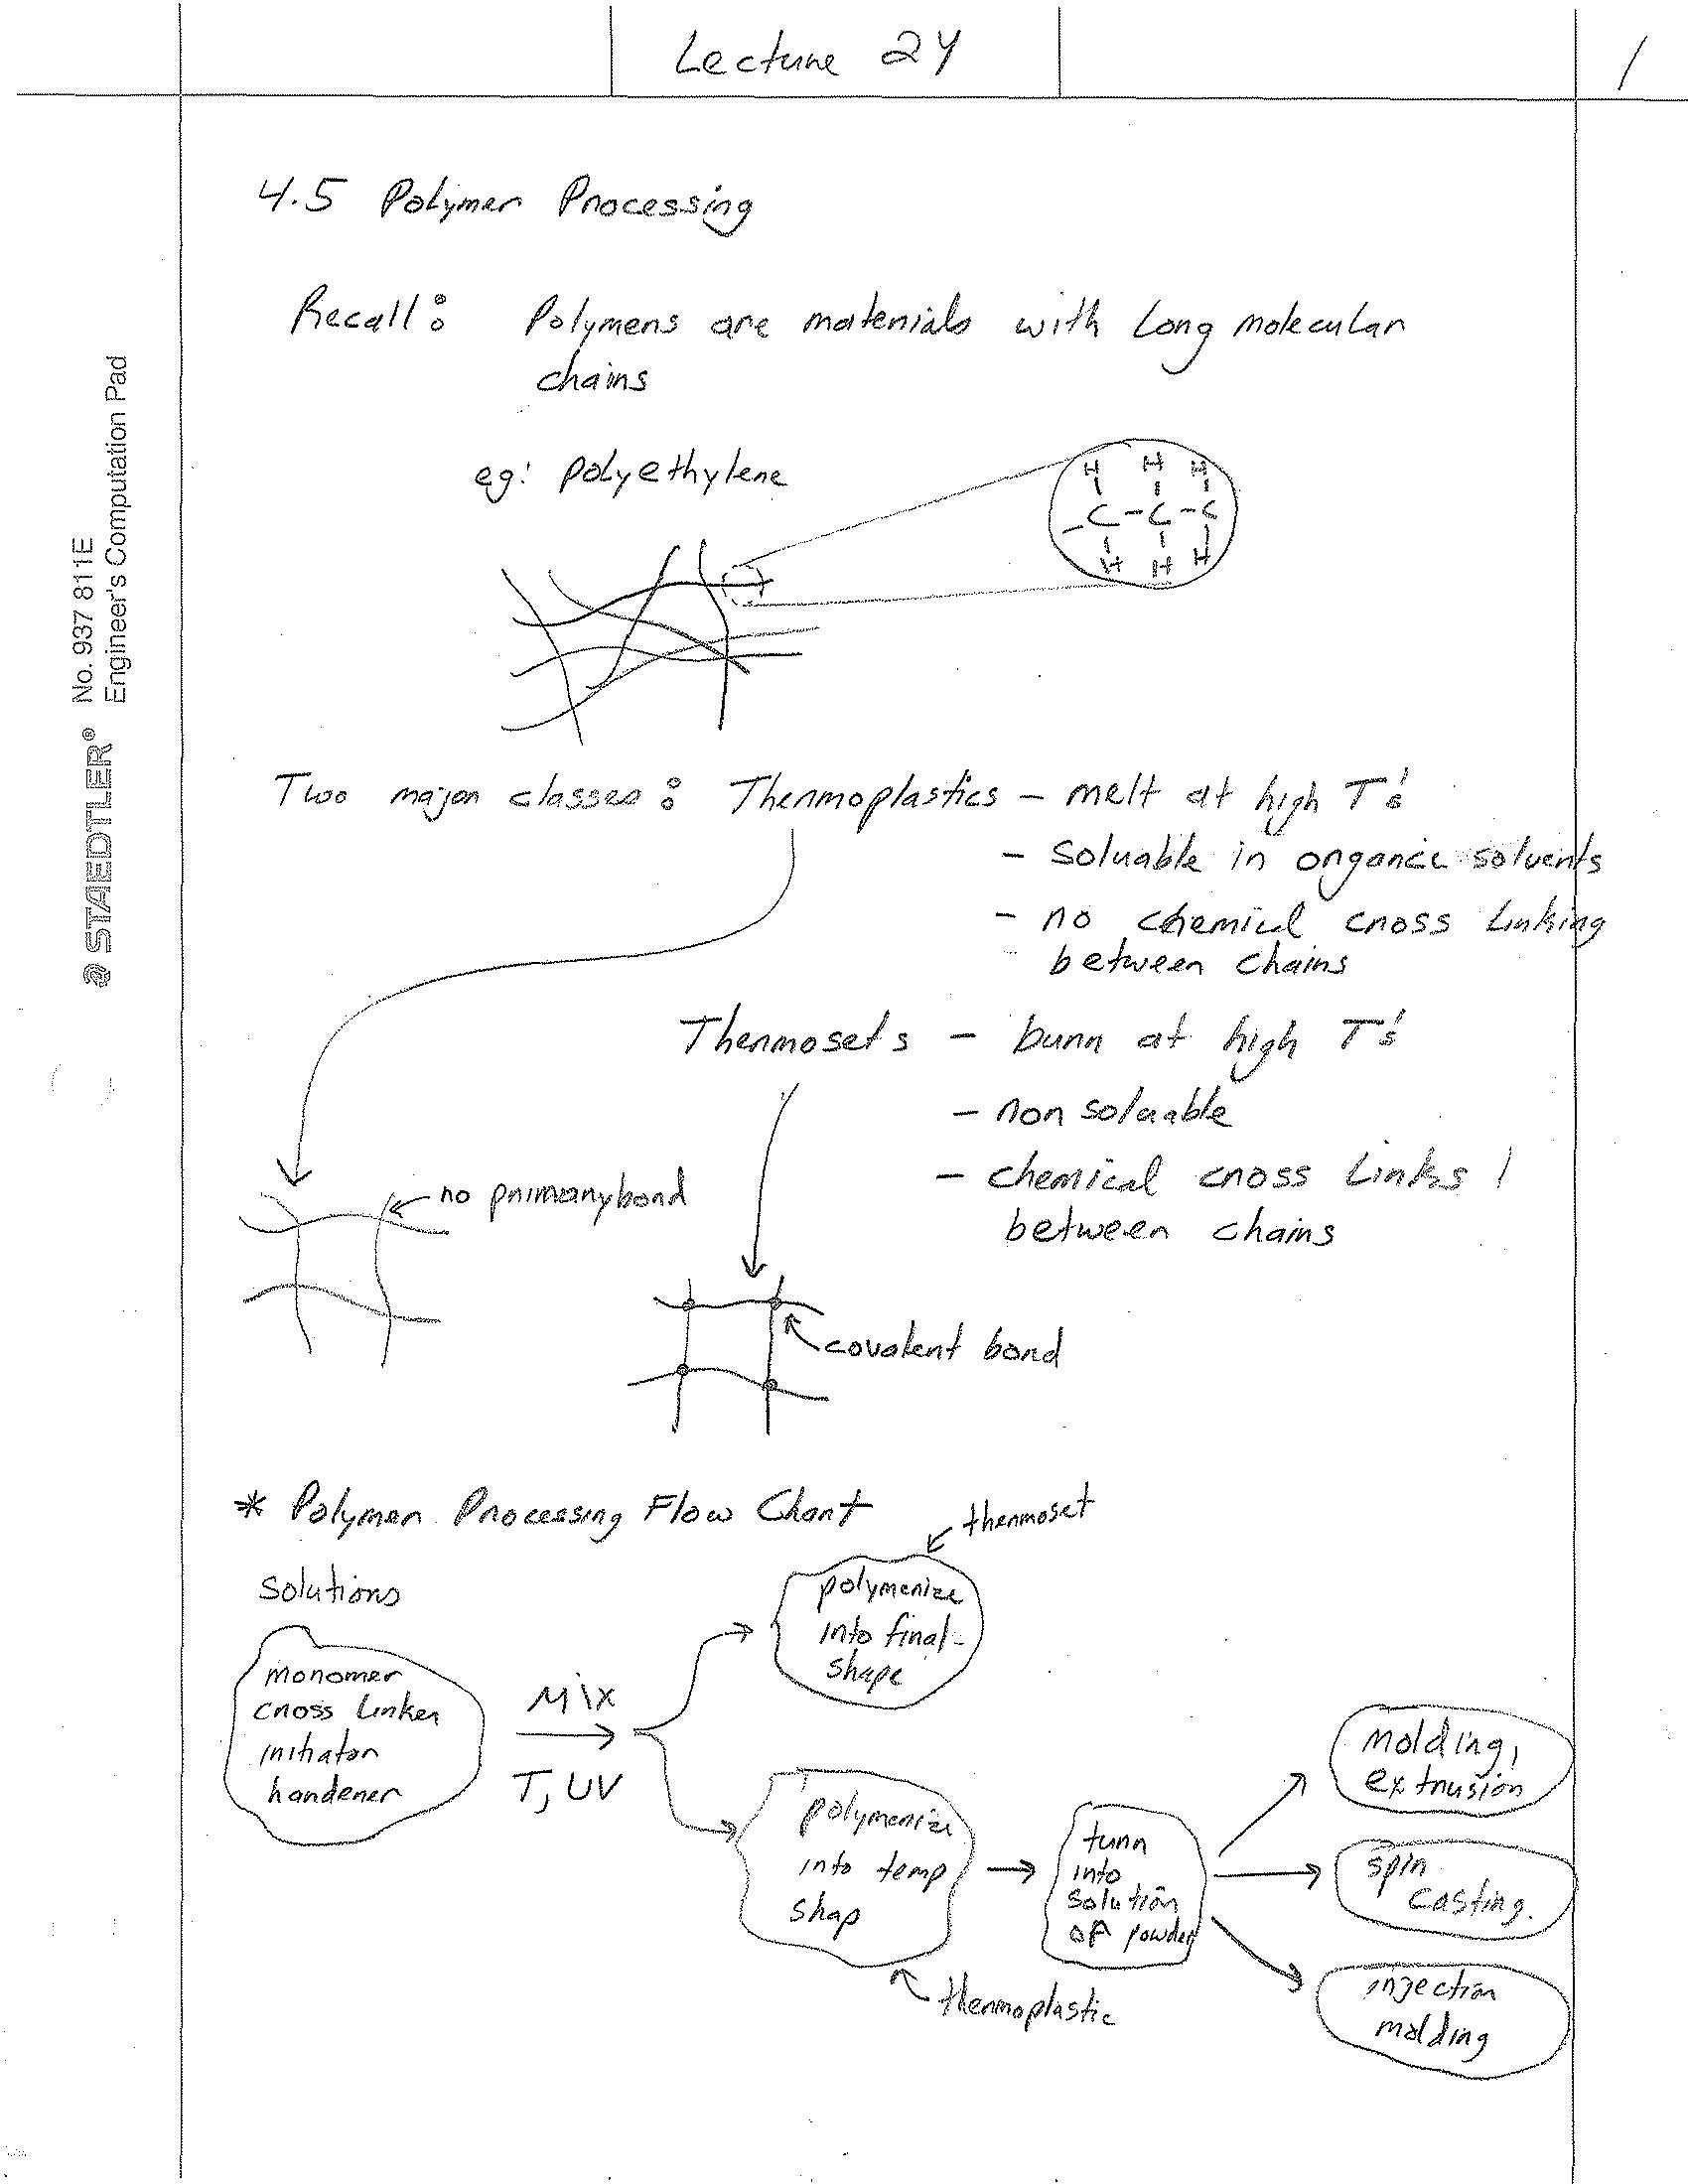 Lecture 24
1
4.5 Polymer Processing
Recall: Polymers are materials with long molecular
chains
eg: polyethylene
H H H
- C - C - C
H H H
Two major classes: Thermoplastics - melt at high T's
- soluable in organic solvents
- no chemicl cross linking
between chains
Thermosets - burn at high T's
- non soluable
- chemical cross links!
between chains
no primary bond
covalent bond
* Polymer Processing Flow Chart
thermoset
Solutions
monomer
cross linker
initiator
hardener
Mix
T, UV
polymerize
into final
shape
polymerize
into temp
shap
thermoplastic
turn
into
solution
or powder
Molding,
extrusion
spin
casting.
injection
molding
STAEDTLER® No. 937 811E
Engineer's Computation Pad